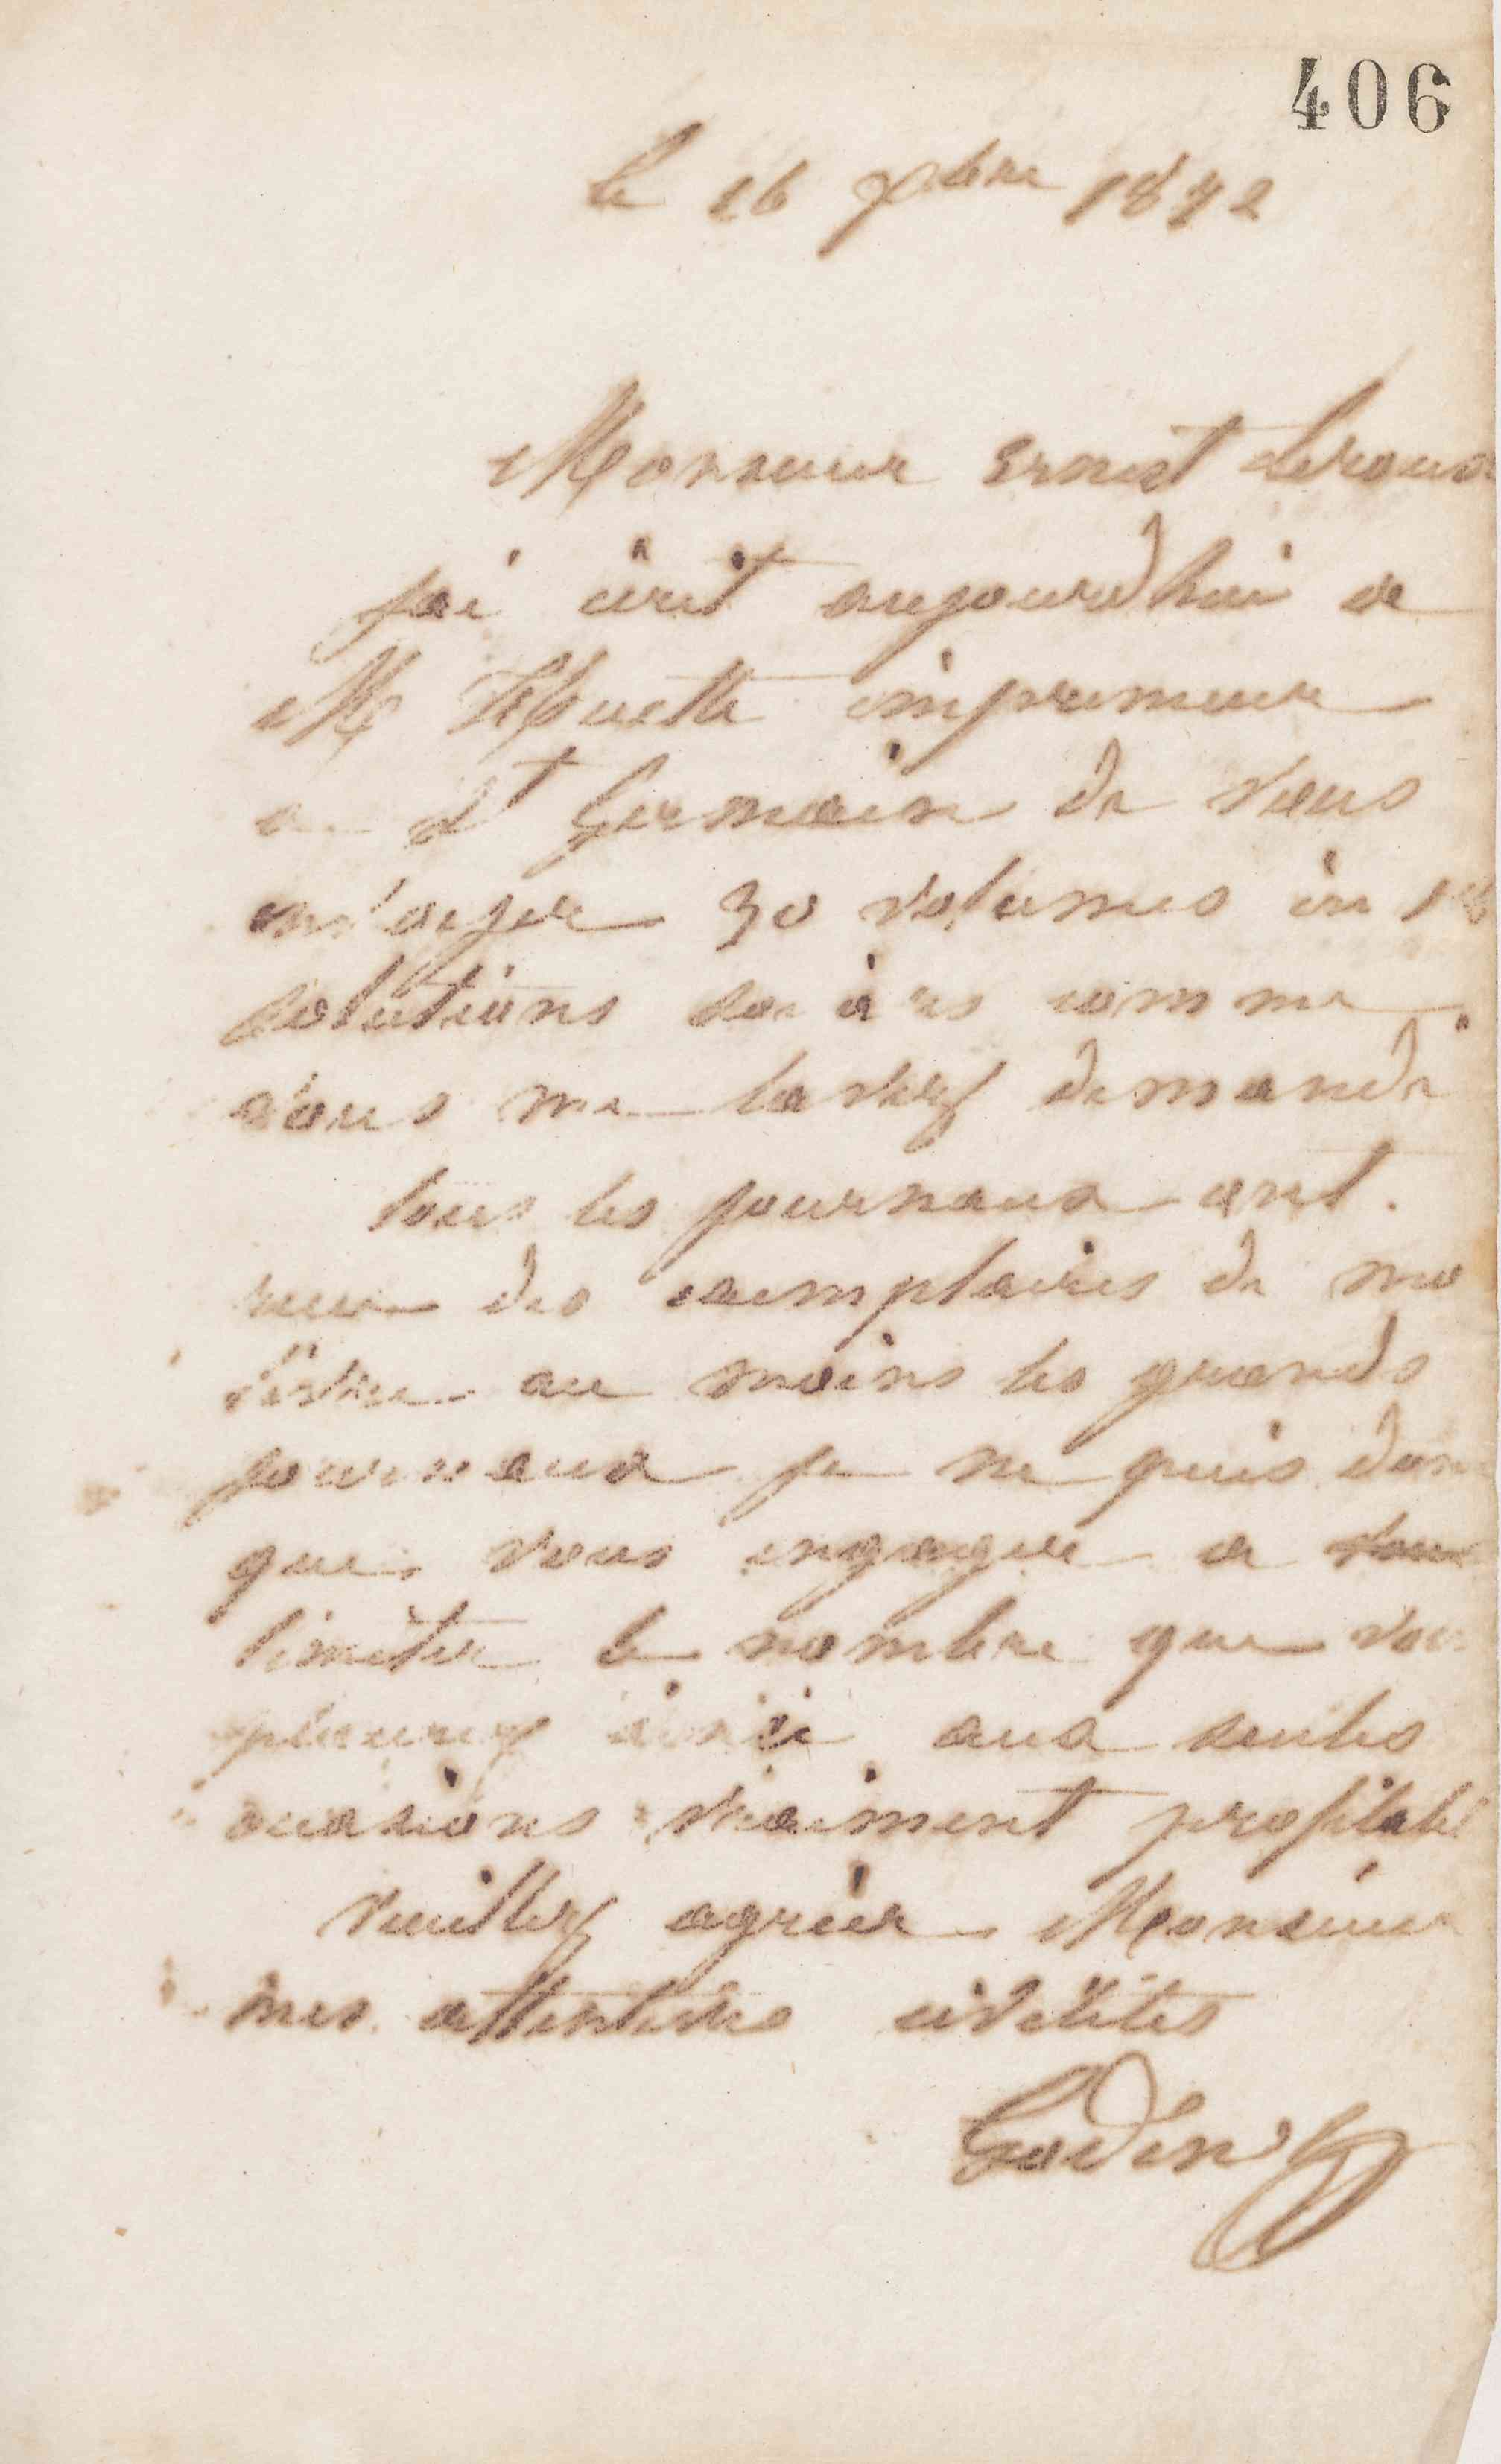 406
le 16 9bre 1872
Monsieur Ernest Leroux
jai écrit aujourdhui a
Mr Heutte imprimeur
a St Germain de vous
envoyer 30 volumes in 18
solutions sociales comme
vous me lavez demandé
tous les journaux ont
reçu des exemplaires de mo
livre au moins les grands
journaux je ne puis donc
que vous engager a
limiter le nombre que vous
placerez ainsi aux seules
occasions vraiment profitable
veuillez agréer Monsieur
mes attentives civilités
Godin